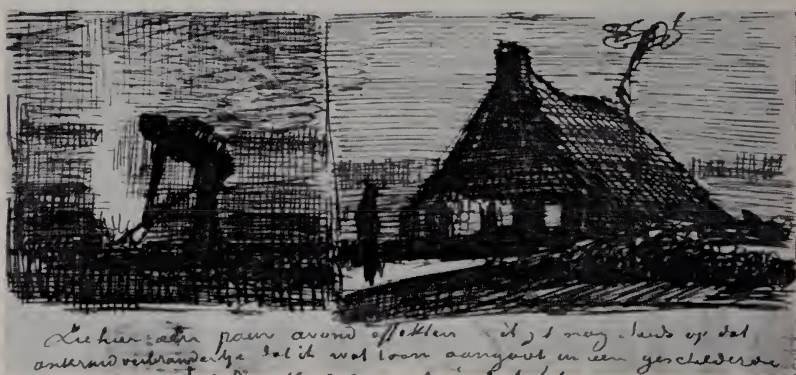 Zie hier een paar avond effekten ik zit nog steeds op dat
onkruidverbrandertje dat ik wat toon aangaat in een geschilderde